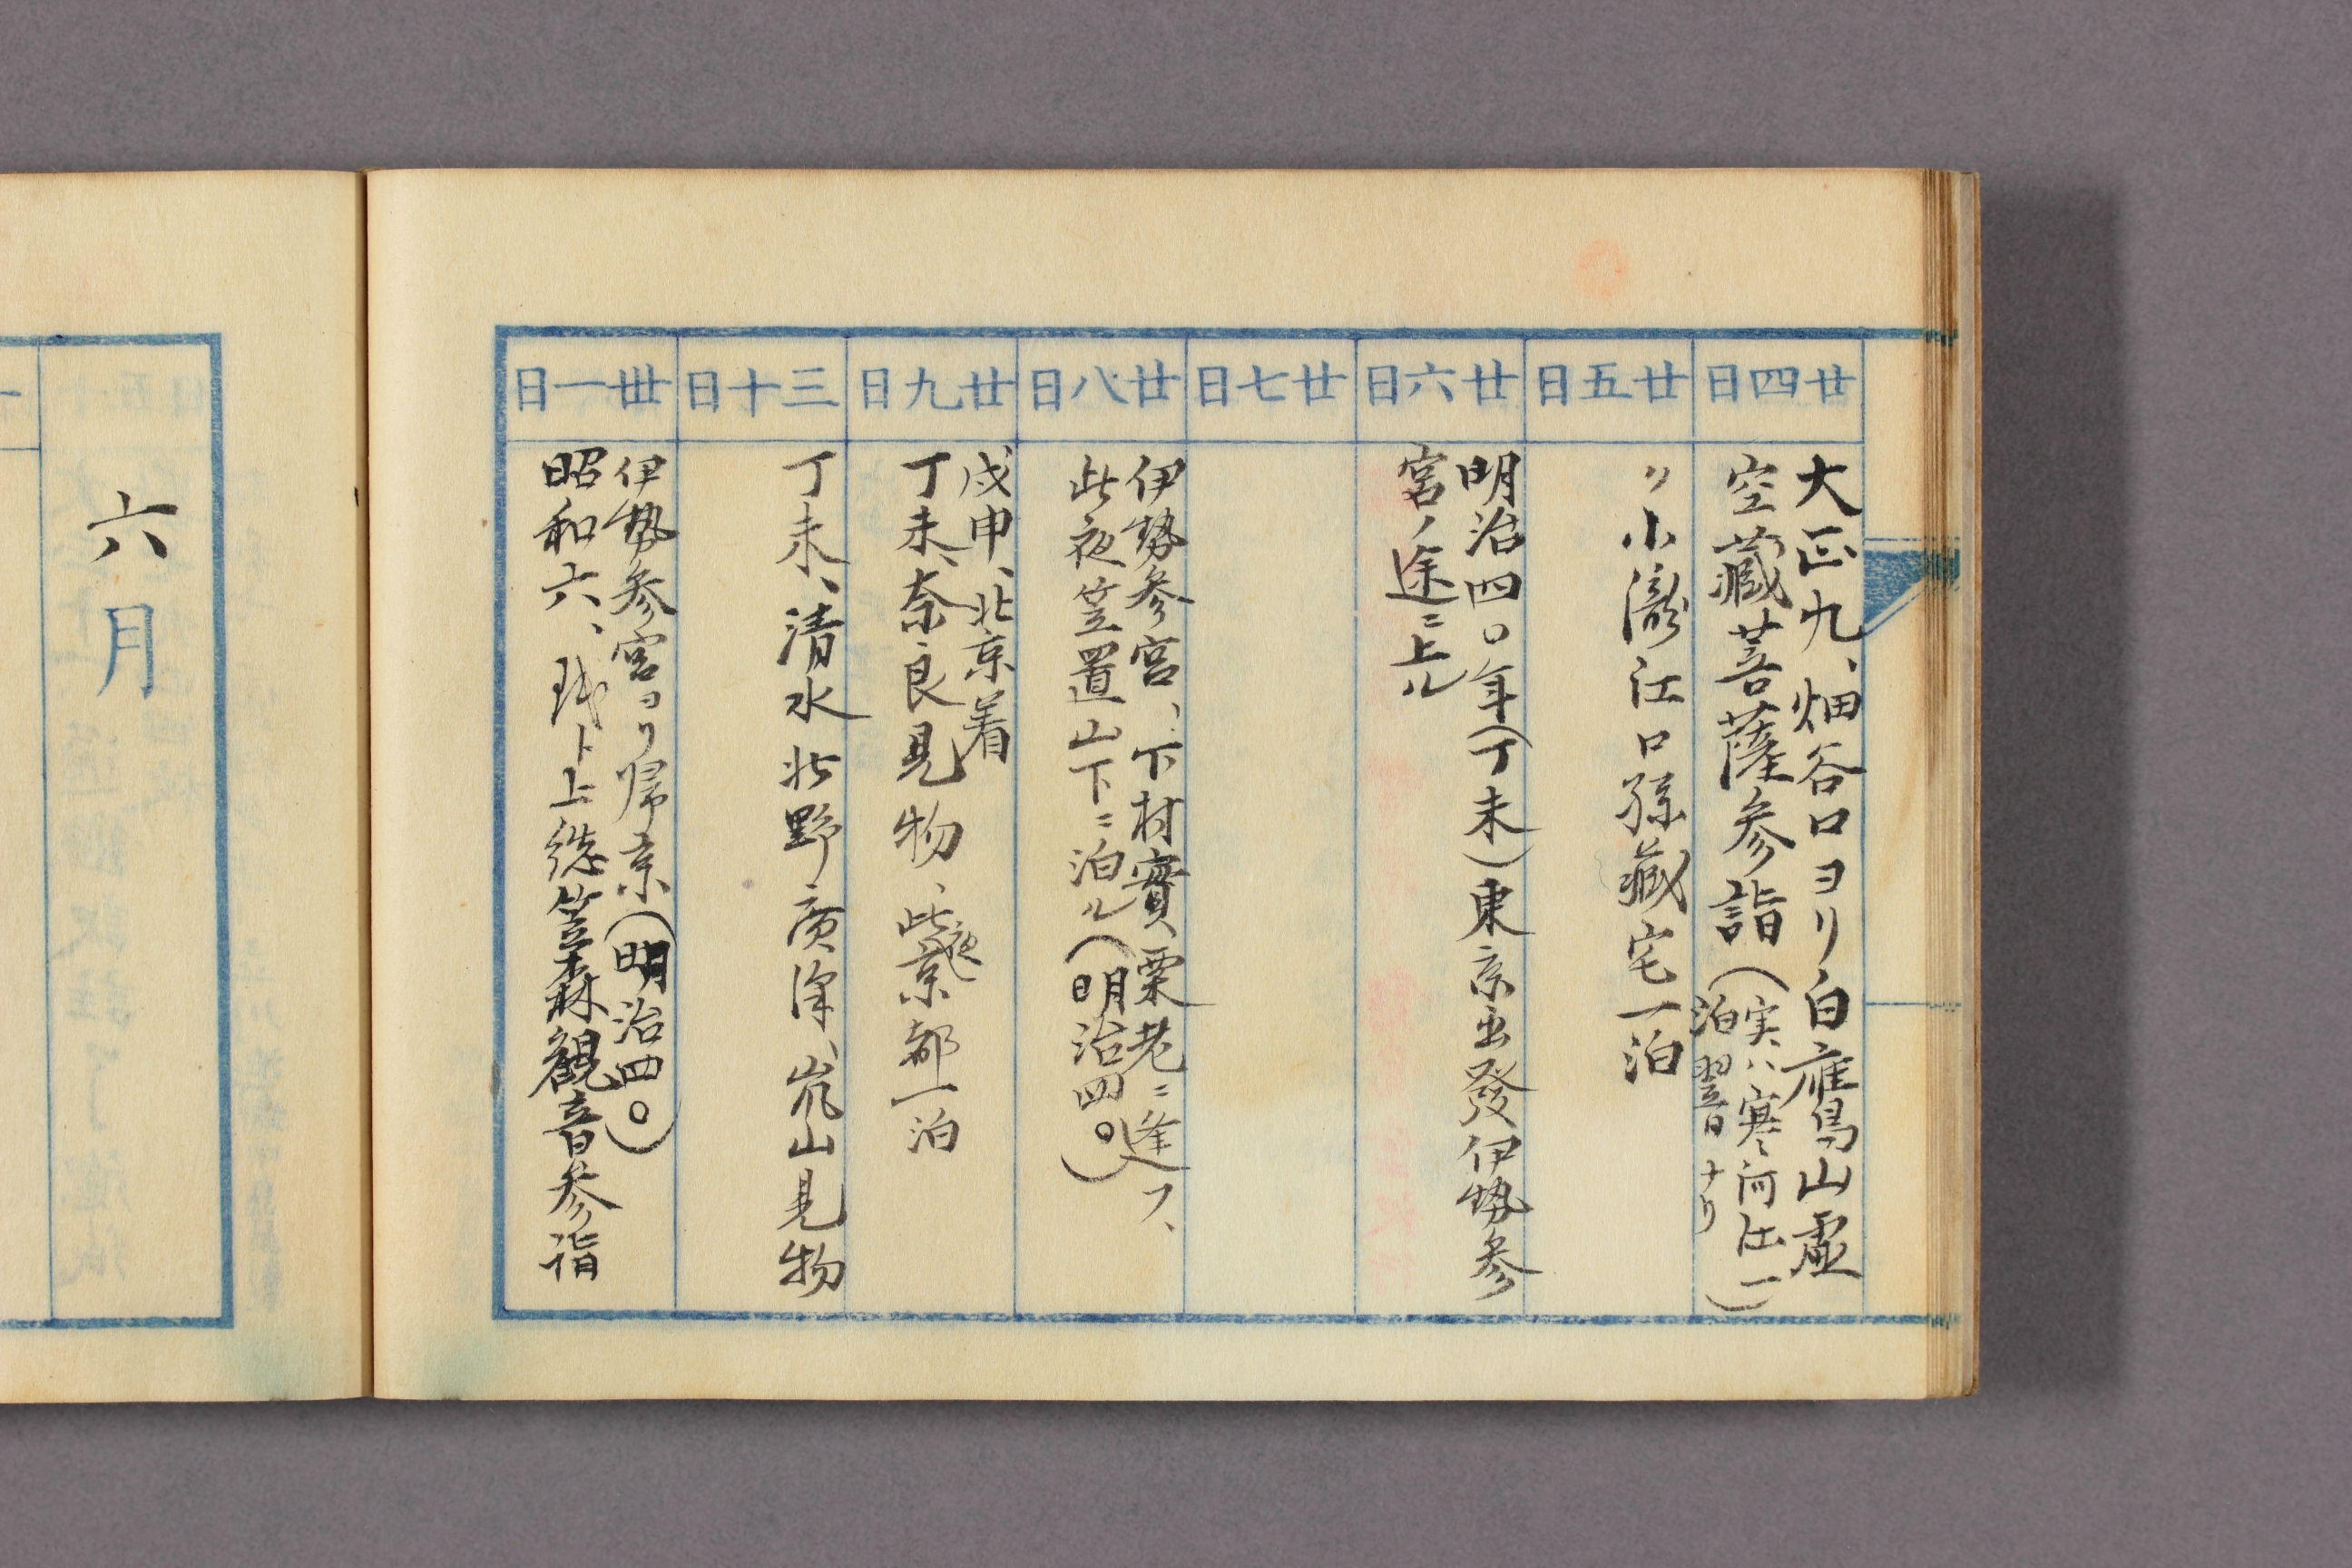 廿四日
大正九、畑谷口ヨリ白鷹山虚
空藏菩薩参詣(実ハ寒河江一
泊翌日ナリ)
廿五日
〃小瀧江口孫藏宅一泊
廿六日
明治四〇年(丁未)東京出發伊勢参
宮ノ途ニ上ル
廿七日
廿八日
伊勢参宮、下村實栗老ニ逢フ、
此夜笠置山下ニ泊ル(明治四〇)
廿九日
戊申、北京着
丁未、奈良見物、此夜京都一泊
三十日
丁未、清水北野広隆、嵐山見物
丗一日
伊勢参宮ヨリ帰京(明治四〇)
昭和六、ト上總笠森観音参詣
六月